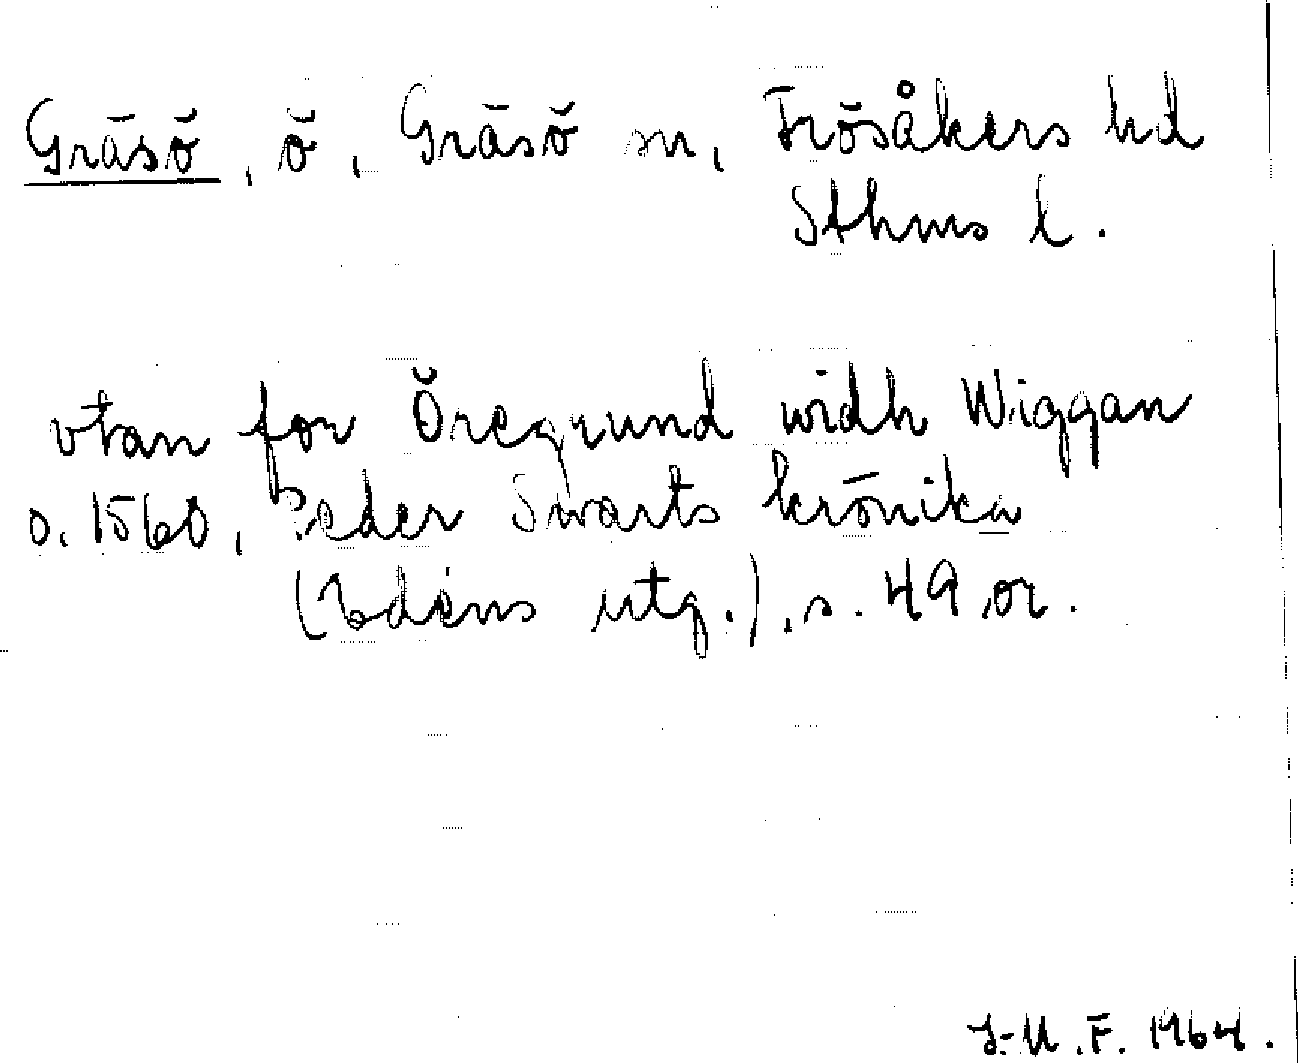 Gräsö, ö, Gräsö sn, Frösåkers hd
Sthms l.
vtan for Öregrund widh Wiggan
o. 1560, Peder Swarts krönika
(Edéns utg.), s. 49 or.
J-M.F. 1964.